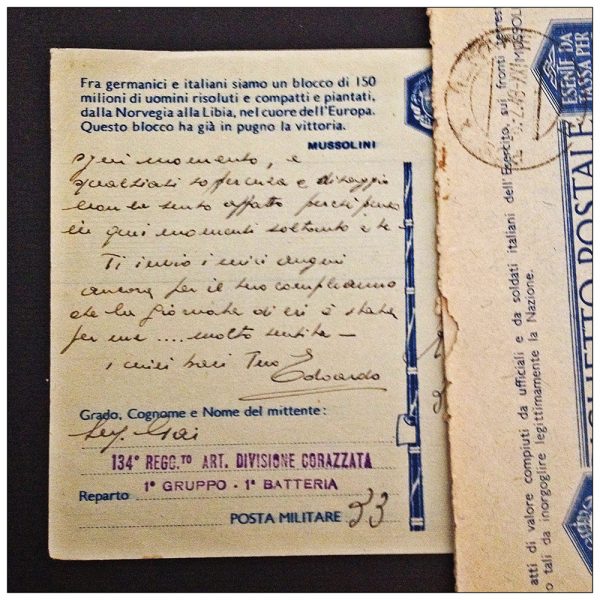 Fra germanici e italiani siamo un blocco di 150
milioni di uomini risoluti e compatti e piantati,
dalla Norvegia alla Libia, nel cuore dell'Europa.
Questo blocco ha già in pugno la vittoria.
MUSSOLINI
ogni momento, e
qualsiasi sofferenza e disagio
non la sento affatto perchè penso
in quei momenti soltanto a te -
Ti invio i miei auguri
ancora per il tuo compleanno
che la giornata di eri è stata
per me .... molto sentita -
i miei baci Tuo
Edoardo
Grado, Cognome e Nome del mittente:
134° REGG.TO ART. DIVISIONE CORAZZATA
1° GRUPPO - 1ª BATTERIA
Reparto
POSTA MILITARE 33
ESENTE DA
TASSA PER
BIGLIETTO POSTALE
atti di valore compiuti da ufficiali e da soldati italiani dell'Esercito, sui fronti
tali da inorgoglire legittimamente la Nazione.